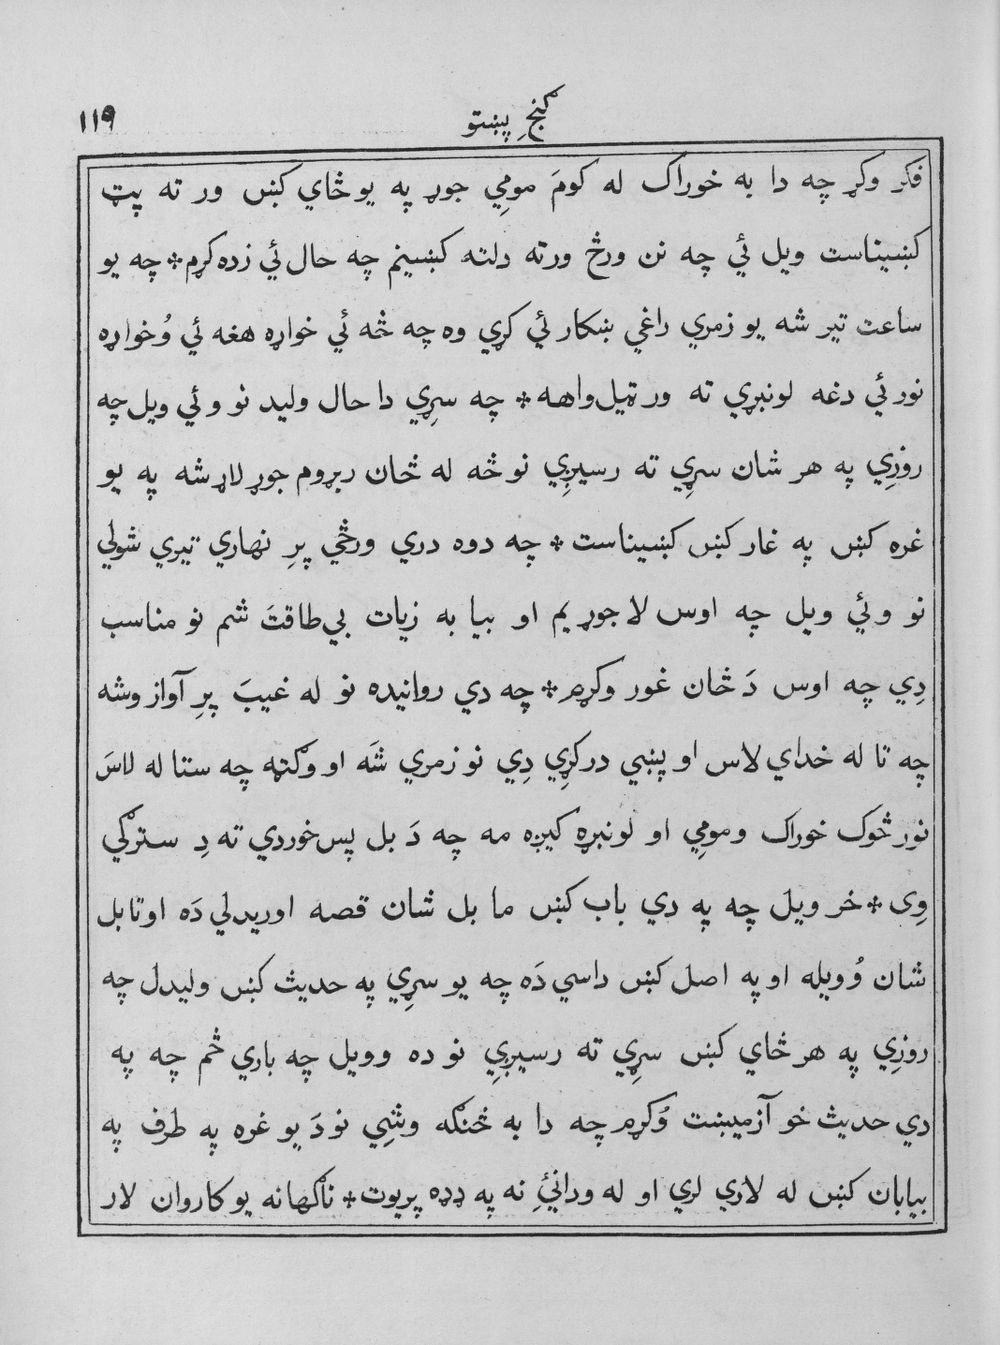 ګنجِ پښتو
۱۱۹
فکر وکړ چه دا به خوراک له کومَ مومِي جوړ په يو ځاي کښں ور ته پټ
کښيناست ويل ئي چه نن ورځ ورته دلته کښينم چه حال ئي زده کړم * چه يو
ساعت تير شه يو زمري راغي ښکار ئي کړي وه چه څه ئي خواړه هغه ئي وُخواړه
نور ئي دغه لونبړي ته ورټيل واهه * چه سړِي دا حال وليد نو وئي ويل چه
روزِي په هر شان سړِي ته رسيږِي نو څه له ځان ربړوم جوړ لاړ شه په يو
غره کښں په غار کښں کښيناست * چه دوه دري ورځي پرِ نهاري تيري شولي
نو وئي ويل چه اوس لا جوړ يم او بيا به زيات بي طاقتَ شم نو مناسب
دِي چه اوس دَ ځان غور وکړم * چه دي روانيده نو له غيبَ پرِ آواز وشه
چه تا له خداي لاس او پښي درکړِي دِي نو زمري شَه او وګټه چه ستا له لاسَ
نور څوک خوراک ومومِي او لونبړه کيږه مه چه دَ بل پس خوردي ته دِ سترګي
وِی * خر ويل چه په دي باب کښں ما بل شان قصه اوريدلي دَه او تا بل
شان وُويله او په اصل کښں داسي دَه چه يو سړِي په حديث کښں وليدل چه
روزِي په هر ځاي کښں سړِي ته رسيږِي نو ده وويل چه باري ځم چه په
دي حديث خو آزميښت وُکړم چه دا به څنګه وشِي نو دَ يو غره په طرف په
بيابان کښں له لاري لري او له ورانئِ نه په ډډه پريوت * ناګهانه يو کاروان لار